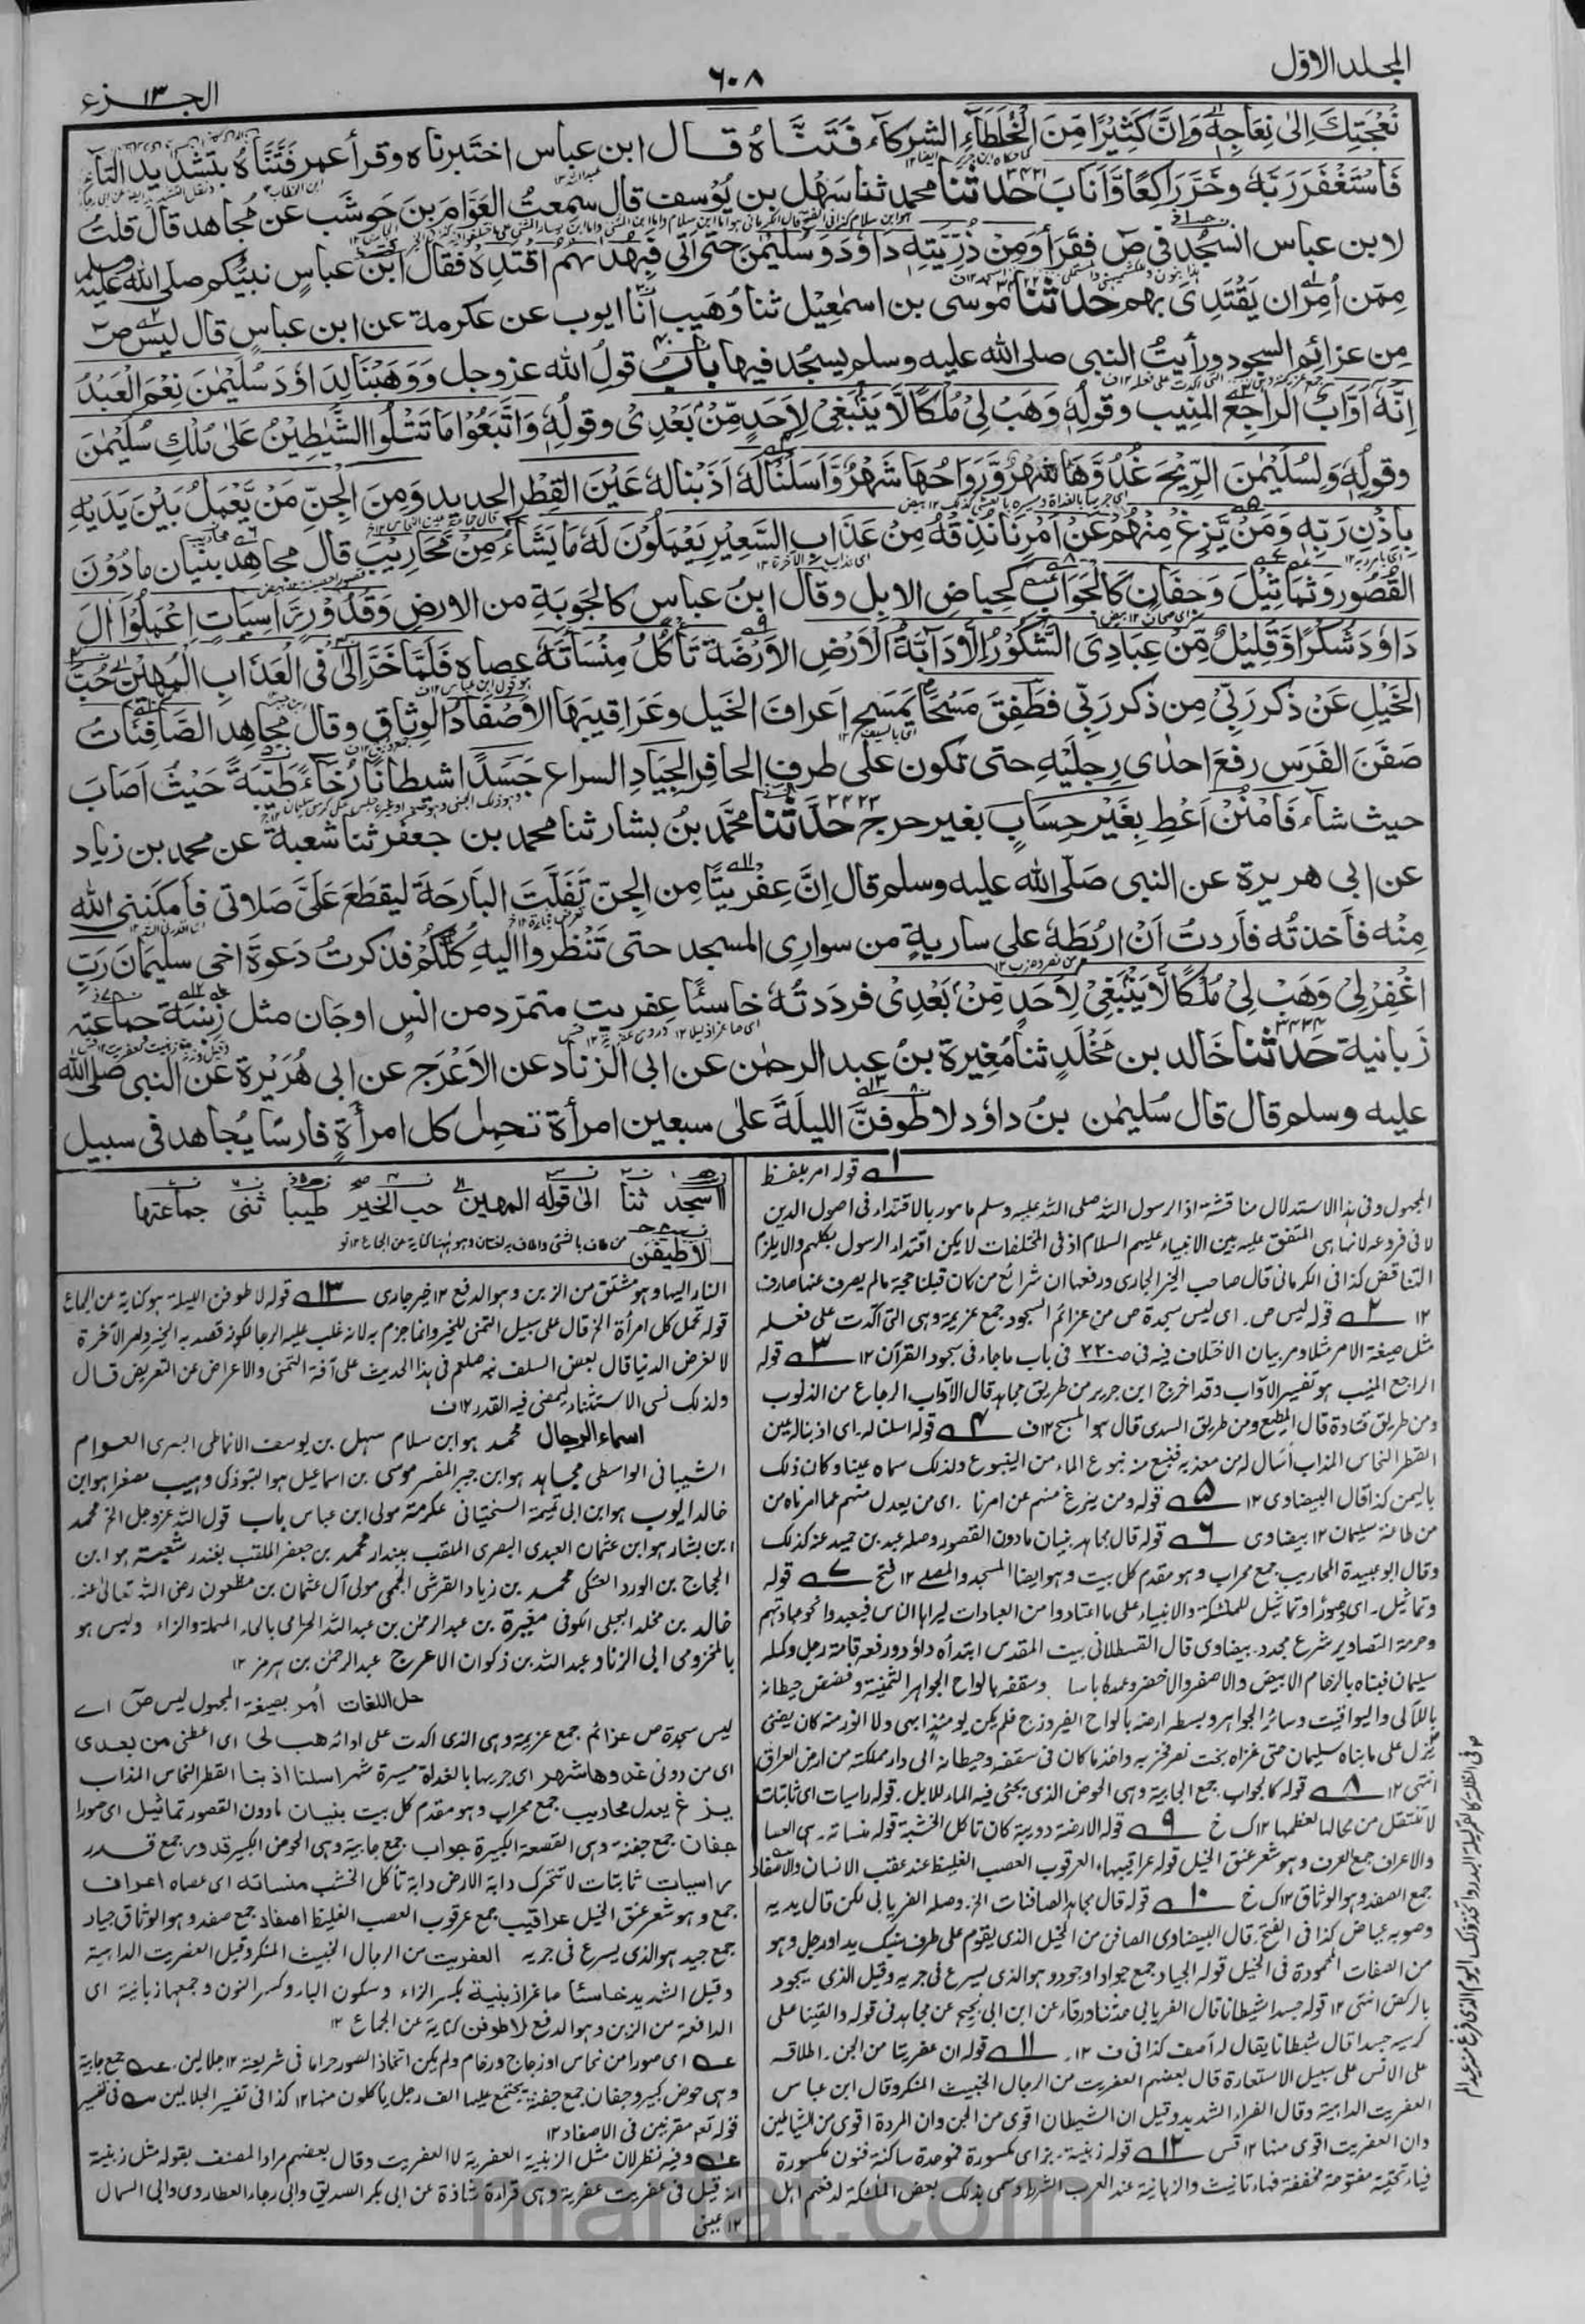 المجلد الاول
٦٠٨
الجزء ١٣
نَعْجَتِكَ اِلٰى نِعَاجِهٖ وَاِنَّ كَثِيْرًا مِّنَ الْخُلَطَآءِ الشركآء فَتَنَّاهُ قال ابن عباس اختبرناه وقرأ عمر فَتَّنَّاهُ بتشديد التآء
فَاسْتَغْفَرَ رَبَّهٗ وَخَرَّ رَاكِعًا وَّاَنَابَ حدثنا محمد ثنا سهل بن يُوْسف قال سمعتُ العَوَّامَ بنَ حَوشَب عن مُجاهد قال قلتُ
لابن عباس انسجُد فى صٓ فقَرأ وَمِنْ ذُرِّيَّتِهٖ دَاوٗدَ وَسُلَيْمٰنَ حتّى اَتٰى فَبِهُدٰىهُمُ اقْتَدِهْ فقال ابن عباس نبيُّكم صلى الله عليه وسلم
مِمّن اُمِرَ ان يَقْتَدِىَ بهم حدثنا موسى بن اسمٰعِيْل ثنا وُهَيب انا ايوب عن عكرمة عن ابن عباس قال ليس صٓ
مِن عزائم السجود ورأيتُ النبى صلى الله عليه وسلم يسجُد فيها بابُ قولِ الله عز وجل وَوَهَبْنَا لِدَاوٗدَ سُلَيْمٰنَ نِعْمَ الْعَبْدُ
اِنَّهٗٓ اَوَّابٌ الراجع المنيب وقولِهٖ وَهَبْ لِىْ مُلْكًا لَّا يَنْۢبَغِىْ لِاَحَدٍ مِّنْۢ بَعْدِىْ وقولِهٖ وَاتَّبَعُوْا مَا تَتْلُوا الشَّيٰطِيْنُ عَلٰى مُلْكِ سُلَيْمٰنَ
وقولِهٖ وَلِسُلَيْمٰنَ الرِّيْحَ غُدُوُّهَا شَهْرٌ وَّرَوَاحُهَا شَهْرٌ وَّاَسَلْنَا لَهٗ اَذَبْنا له عَيْنَ الْقِطْرِ الحديد وَمِنَ الْجِنِّ مَنْ يَّعْمَلُ بَيْنَ يَدَيْهِ
بِاِذْنِ رَبِّهٖ وَمَنْ يَّزِغْ مِنْهُمْ عَنْ اَمْرِنَا نُذِقْهُ مِنْ عَذَابِ السَّعِيْرِ يَعْمَلُوْنَ لَهٗ مَا يَشَآءُ مِنْ مَّحَارِيْبَ قال مجاهد بنيان ما دُوْنَ
القُصُوْر وَتَمَاثِيْلَ وَجِفَانٍ كَالْجَوَابِ كحِياضِ الابل وقال ابنُ عباس كالجَوبَةِ من الارض وَقُدُوْرٍ رّٰسِيَاتٍ اِعْمَلُوْٓا اٰلَ
دَاوٗدَ شُكْرًا وَقَلِيْلٌ مِّنْ عِبَادِىَ الشَّكُوْرُ اِلَّا دَآبَّةُ الْاَرْضِ الاَرَضَة تَأْكُلُ مِنْسَاَتَهٗ عصاه فَلَمَّا خَرَّ اِلىٰ فِى الْعَذَابِ الْمُهِيْنِ حُبَّ
الْخَيْلِ عَنْ ذكر رَبِّىْ مِن ذكر رَبّى فَطَفِقَ مَسْحًا يَمْسَح اَعرافَ الخَيل وعَرَاقيبَها الاَصْفَادُ الوِثاق وقال مجاهد الصَّافِنَاتُ
صَفَنَ الفَرَس رفَعَ احدٰى رِجلَيْهِ حتى تكون على طرف الحافر الجِيَادُ السراع جَسَدًا شيطانا رُخَآءً طَيّبَةً حَيْثُ اَصَابَ
حيث شاء فَامْنُنْ اَعْطِ بِغَيْرِ حِسَابٍ بغير حرج حدثنا محمّد بنُ بشار ثنا محمد بن جعفر ثنا شعبة عن محمد بن زياد
عن ابى هريرة عن النبى صلى الله عليه وسلم قال اِنَّ عِفْرِيتًا من الجنّ تَفَلَّتَ البَارحَةَ ليقطَعَ عَلَىَّ صَلاتى فَاَمكَنَنِى الله
مِنْه فاَخذتُه فاَردتُ اَن اَربُطَهٗ على ساريةٍ من سوارى المسجد حتى تَنْظُروا اليهِ كُلُّكُمْ فذكرتُ دَعوةَ اخى سليمانَ رَبِّ
اغْفِرْ لِىْ وَهَبْ لِىْ مُلْكًا لَّا يَنْۢبَغِىْ لِاَحَدٍ مِّنْۢ بَعْدِىْ فرددتُهٗ خاسئًا عِفريت متمرّد من انسٍ اوجَانّ مثل زِبْنِيَة جماعته
زَبانية حدثنا خَالد بن مَخْلَدٍ ثنا مُغِيرة بنُ عبد الرحمٰن عن ابى الزناد عن الاَعْرَج عن ابى هُرَيْرة عن النبى صلى الله
عليه وسلم قال قال سُليمٰن بنُ داوٗد لاَطوفنَّ الليلَةَ على سبعين امرأة تحمِل كل امرأةٍ فارسًا يُجاهد فى سبيل
اسجد ثنا الى قوله المهين حب الخير طيبا ثنى جماعتها
لاطيفن
١ قوله امر بلفظ
المجهول وفى هذا الاستدلال مناقشة اذ الرسول الله صلى الله عليه وسلم مامور بالاقتداء فى اصول الدين
لا فى فروعه لانها هى المتفق عليه بين الانبياء عليهم السلام اذ فى المختلفات لا يمكن اقتداء الرسول بكلهم والا يلزم
التناقض كذا فى الكرمانى قال صاحب الخير الجارى
١٢ ٢ قوله ليس ص. اى ليس سجدة ص من عزائم السجود جمع عزيمة وهى التى اكدت على فعله
مثل صيغة الامر مثلا ومر بيان الاختلاف فيه فى ص ٢٢٠ فى باب ما جاء فى سجود القرآن ١٢ ٣ قوله
الراجع المنيب هو تفسير الاواب وقد اخرج ابن جرير من طريق مجاهد قال الاواب الرجاع من الذنوب
ومن طريق قتادة قال المطيع ومن طريق السدى قال هو المسبح ١٢ف ٤ قوله اسلنا له. اى اذبنا له عين
القطر النحاس المذاب اسال له من معدنه فنبع منه نبوع الماء من الينبوع ولذلك سماه عينا وكان ذلك
باليمن كذا قال البيضاوى ١٢ ٥ قوله ومن يزغ منهم عن امرنا. اى من يعدل منهم عما امرناه من
من طاعة سليمان ١٢ بيضاوى ٦ قوله قال مجاهد بنيان ما دون القصور وصله عبد بن حميد عنه كذلك
وقال ابو عبيدة المحاريب جمع محراب وهو مقدم كل بيت وهو ايضا المسجد والمصلى ١٢ فتح ٧ قوله
وتماثيل. اى وصورا وتماثيل للملئكة والانبياء على ما اعتادوا من العبادات ليراها الناس فيعبدوا نحو عبادتهم
وحرمة التصاوير شرع مجدد. بيضاوى قال القسطلانى بيت المقدس ابتدأه داؤد ورفعه قامة رجل وكمله
سليمان فبناه بالرخام الابيض والاصفر والاخضر وسقفه بالواح الجواهر الثمينة وفصص حيطانه
باللآلى واليواقيت وسائر الجواهر وبسط ارضه بالواح الفيروزج فلم يكن يومئذ ابهى ولا انور منه كان يضئ
انتهى ١٢ ٨ قوله كالجواب جمع الجابية وهى الحوض الذى يجبى فيه الماء للابل. قوله راسيات اى ثابتات
لا تنتقل من محالها لعظمها ١٢ك خ ٩ قوله الارضة دويبة كان تاكل الخشبة قوله منساته. هى العصا
والاعراف جمع العرف وهو شعر عنق الخيل قوله عراقيبها. العرقوب العصب الغليظ عند عقب الانسان والاصفاد
جمع الصفد وهو الوثاق ١٢ك خ ١٠ قوله قال مجاهد الصافنات الخ. وصله الفريابى لكن قال يديه
وصوبه عياض كذا فى الفتح. قال البيضاوى الصافن من الخيل الذى يقوم على طرف سنبك يد او رجل وهو
من الصفات المحمودة فى الخيل قوله الجياد جمع جواد او جود وهو الذى يسرع فى جريه وقيل الذى يجود
بالركض انتهى ١٢ قوله جسدا شيطانا قال الفريابى حدثنا ورقاء عن ابن ابى نجيح عن مجاهد فى قوله والقينا على
كرسيه جسدا قال شيطانا يقال له آصف كذا فى ف ١٢. ١١ قوله ان عفريتا من الجن. اطلاقه
على الانس على سبيل الاستعارة قال بعضهم العفريت من الرجال الخبيث المنكر وقال ابن عباس
العفريت الداهية وقال الفراء الشديد وقيل ان الشيطان اقوى من الجن وان المردة اقوى من الشياطين
وان العفريت اقوى منها ١٢ قس ١٢ قوله زبنية. بزاى مكسورة فموحدة ساكنة فنون مكسورة
فياء تحتية مفتوحة مخففة فهاء تانيث والزبانية عند العرب الشرط وسمى بذلك بعض الملئكة لدفعهم اهل
النار اليها وهو مشتق من الزبن وهو الدفع ١٢ خير جارى ١٣ قوله لاطوفن الليلة هو كناية عن الجماع
قوله تحمل كل امرأة الخ قال على سبيل التمنى للخير وانما جزم به لانه غلب عليه الرجا لكونه قصد به الخير وامر الآخرة
لا لغرض الدنيا قال بعض السلف نبه صلعم فى هذا الحديث على آفة التمنى والاعراض عن التفويض قال
ولذلك نسى الاستثناء ليمضى فيه القدر ١٢ف
اسماء الرجال محمد هو ابن سلام سهل بن يوسف الانماطى البصرى العوام
الشيبانى الواسطى مجاهد هو ابن جبر المفسر موسى بن اسماعيل هو التبوذكى وهيب مصغرا هو ابن
خالد ايوب هو ابن ابى تميمة السختيانى عكرمة مولى ابن عباس باب قول الله عز وجل الخ محمد
ابن بشار هو ابن عثمان العبدى البصرى الملقب ببندار محمد بن جعفر الملقب بغندر شعبة هو ابن
الحجاج بن الورد العتكى محمد بن زياد القرشى الجمحى مولى آل عثمان بن مظعون رضى الله تعالى عنه.
خالد بن مخلد البجلى الكوفى مغيرة بن عبد الرحمن بن عبد الله الحزامى بالحاء المهملة والزاء وليس هو
بالمخزومى ابى الزناد عبد الله بن ذكوان الاعرج عبد الرحمن بن هرمز ١٢
حل اللغات أمر بصيغة المجهول ليس صٓ اے
ليس سجدة ص عزائم جمع عزيمة وهى الذى اكدت على ادائه هب لى اى اعطنى من بعدى
اى من دونى غدوها شهر اى جريها بالغداة مسيرة شهر اسلنا اذبنا القطر النحاس المذاب
يزغ يعدل محاريب جمع محراب وهو مقدم كل بيت بنيان ما دون القصور تماثيل اى صورا
جفان جمع جفنة وهى القصعة الكبيرة جواب جمع جابية وهى الحوض الكبير قدور جمع قدر
راسيات ثابتات لا تتحرك دابة الارض دابة تأكل الخشب منساته اى عصاه اعراف
جمع وهو شعر عنق الخيل عراقيب جمع عرقوب العصب الغليظ اصفاد جمع صفد وهو الوثاق جياد
جمع جيد هو الذى يسرع فى جريه العفريت من الرجال الخبيث المنكر وقيل العفريت الداهية
وقيل الشديد خاسئا صاغرا زبنية بكسر الزاء وسكون الباء وكسر النون وجمعها زبانية اى
الدافعة من الزبن وهو الدفع لاطوفن كناية عن الجماع ١٢
اى صورا من نحاس او زجاج ورخام ولم يكن اتخاذ الصور حراما فى شريعته ١٢ جلالين. جمع جابية
وهى حوض كبير وجفان جمع جفنة يجتمع عليها الف رجل ياكلون منها ١٢ كذا فى تفسير الجلالين فى تفسير
قوله تعه مقرنين فى الاصفاد ١٢
وفيه نظر لان مثل الزبنية العفرية لا العفريت وقال بعضهم مراد المصنف بقوله مثل زبنية
انه قيل فى عفريت عفرية وهى قراءة شاذة عن ابى بكر الصديق وابى رجاء العطاردى وابى السمال
١٢ عينى
marfat.com